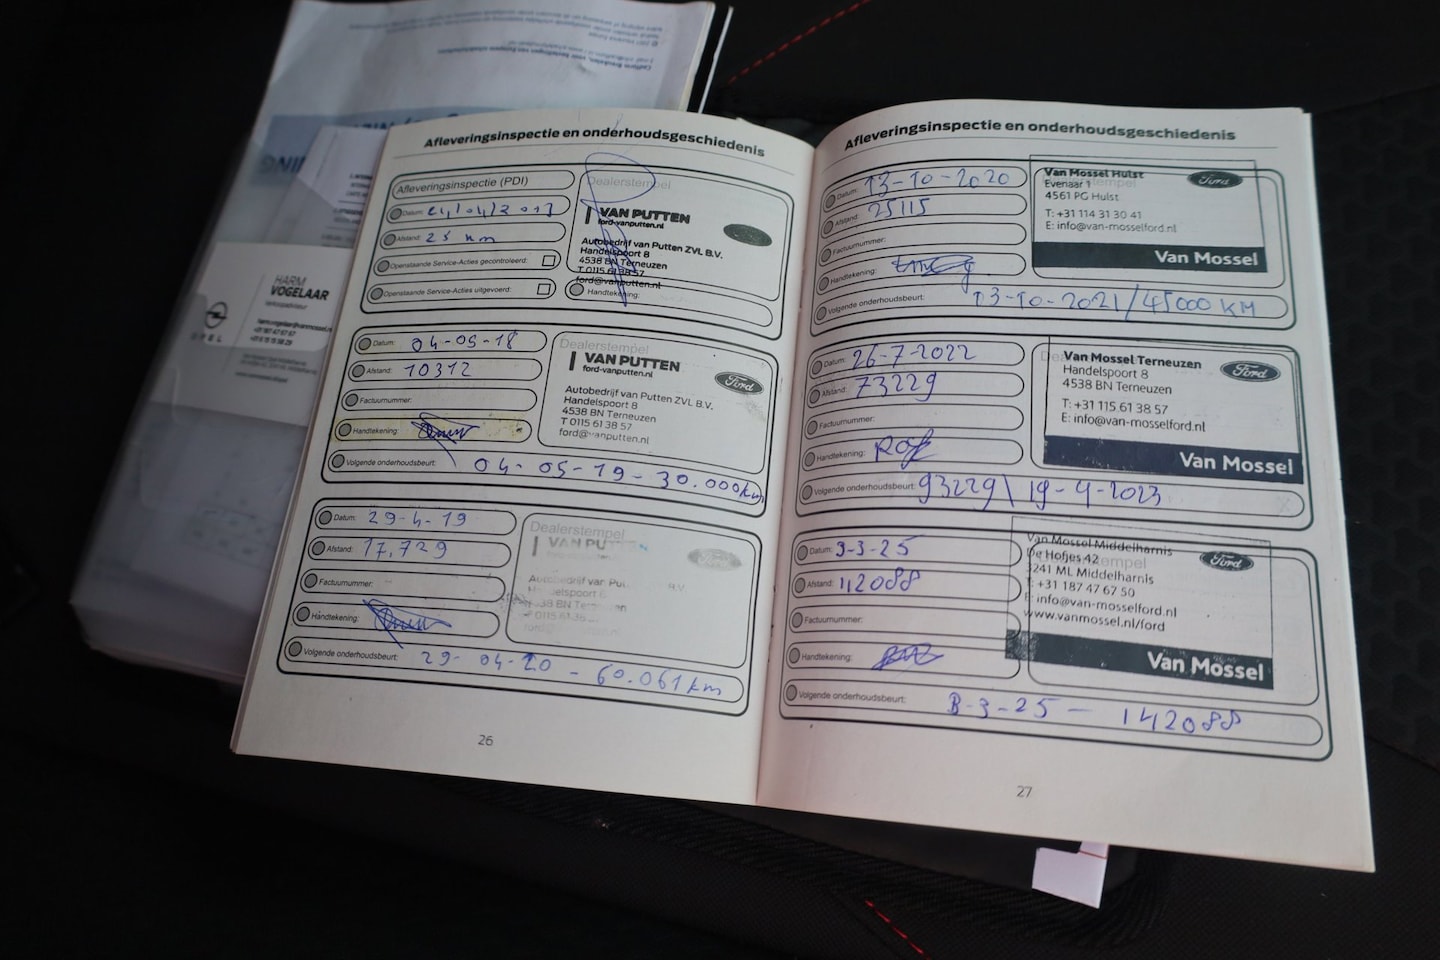 Afleveringsinspectie en onderhoudsgeschiedenis
Afleveringsinspectie (PDI)
Datum: 24/04/2017
Afstand: 25 km
Openstaande Service-Acties gecontroleerd:
Openstaande Service-Acties uitgevoerd:
Dealerstempel
VAN PUTTEN
ford-vanputten.nl
Autobedrijf van Putten ZVL B.V.
Handelspoort 8
4538 BN Terneuzen
T 0115 61 38 57
ford@vanputten.nl
Handtekening:
Datum: 04-05-18
Afstand: 10312
Factuurnummer:
Handtekening:
Volgende onderhoudsbeurt: 04-05-19-30.000km
Dealerstempel
VAN PUTTEN
ford-vanputten.nl
Ford
Autobedrijf van Putten ZVL B.V.
Handelspoort 8
4538 BN Terneuzen
T 0115 61 38 57
ford@vanputten.nl
Datum: 29-4-19
Afstand: 17,729
Factuurnummer:
Handtekening:
Volgende onderhoudsbeurt: 29-04-20 - 60.061km
Dealerstempel
VAN PU
Autobedrijf van Put
26
Afleveringsinspectie en onderhoudsgeschiedenis
Datum: 13-10-2020
Afstand: 25115
Factuurnummer:
Handtekening:
Volgende onderhoudsbeurt: 13-10-2021/45000 KM
Van Mossel Hulst
Evenaar 1
4561 PG Hulst
T: +31 114 31 30 41
E: info@van-mosselford.nl
Ford
Van Mossel
Datum: 26-7-2022
Afstand: 73229
Factuurnummer:
Handtekening:
Volgende onderhoudsbeurt: 93229 \ 19-4-2023
Van Mossel Terneuzen
Handelspoort 8
4538 BN Terneuzen
T: +31 115 61 38 57
E: info@van-mosselford.nl
Ford
Van Mossel
Datum: 9-3-25
Afstand: 112088
Factuurnummer:
Handtekening:
Volgende onderhoudsbeurt: B-3-25 - 142088
Van Mossel Middelharnis
De Hofjes 42
3241 ML Middelharnis
T: +31 187 47 67 50
E: info@van-mosselford.nl
www.vanmossel.nl/ford
Ford
Van Mossel
27
HARM
VOGELAAR
OPEL